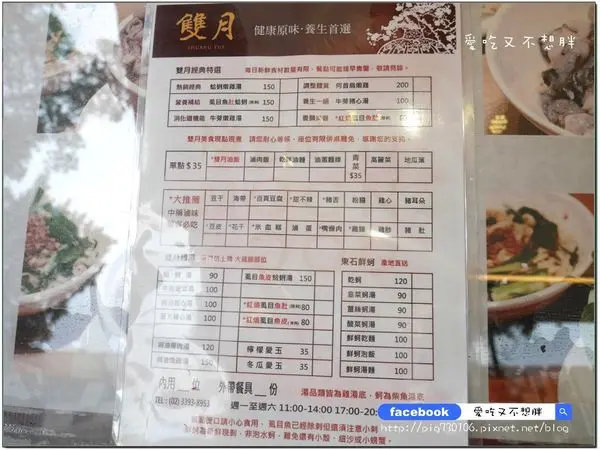 愛吃又不想胖
雙月
SHUANG YUE
健康原味·養生首選
雙月經典特選 每日新鮮食材數量有限，餐點可能提早售罄，敬請見諒。
熱銷經典 蛤蜊燉雞湯 150 調整體質 何首烏燉雞 200
營養補給 虱目魚肚蛤蜊 150 養生一絕 牛蒡豬心湯 100
消化道機能 牛蒡燉雞湯 150 *紅燒虱目魚肚
雙月美食現點現煮 請您耐心等候，座位有限併桌難免，感謝您的支持。
單點$35 *雙月油飯 滷肉飯 乾拌油麵 油蔥麵線 青菜$35 高麗菜 地瓜葉
*大推薦 中藥滷味 必吃
豆干 海帶 *百頁豆腐 *甜不辣 *豬舌 粉腸 雞心 豬耳朵
*豆皮 *花干 *米血糕 滷蛋 *鴨爆肉 *雞腿 雞胗 豬肚
東石鮮蚵 產地直送
湯 90 虱目魚皮蛤蜊湯 150 乾蚵 120
90 韭菜蚵湯 90
100 *紅燒虱目魚肚 80 薑絲蚵湯 90
100 *紅燒虱目魚皮 80 酸菜蚵湯 90
鮮蚵乾麵 100
120 檸檬愛玉 35 鮮蚵泡飯 100
100 冬瓜愛玉 35 鮮蚵湯麵 100
內用__位 外帶餐具__份 湯品類皆為雞湯底，蚵為柴魚湯底
TEL:(02) 3393-8953 週一至週六 11:00-14:00 17:00-20:
口請小心食用，虱目魚已經除刺但還須注意小刺
蚵為新鮮現剝，非泡水蚵，難免還有小殼，細沙或小螃蟹。
facebook 愛吃又不想胖
http://pig730106.pixnet.net/blog